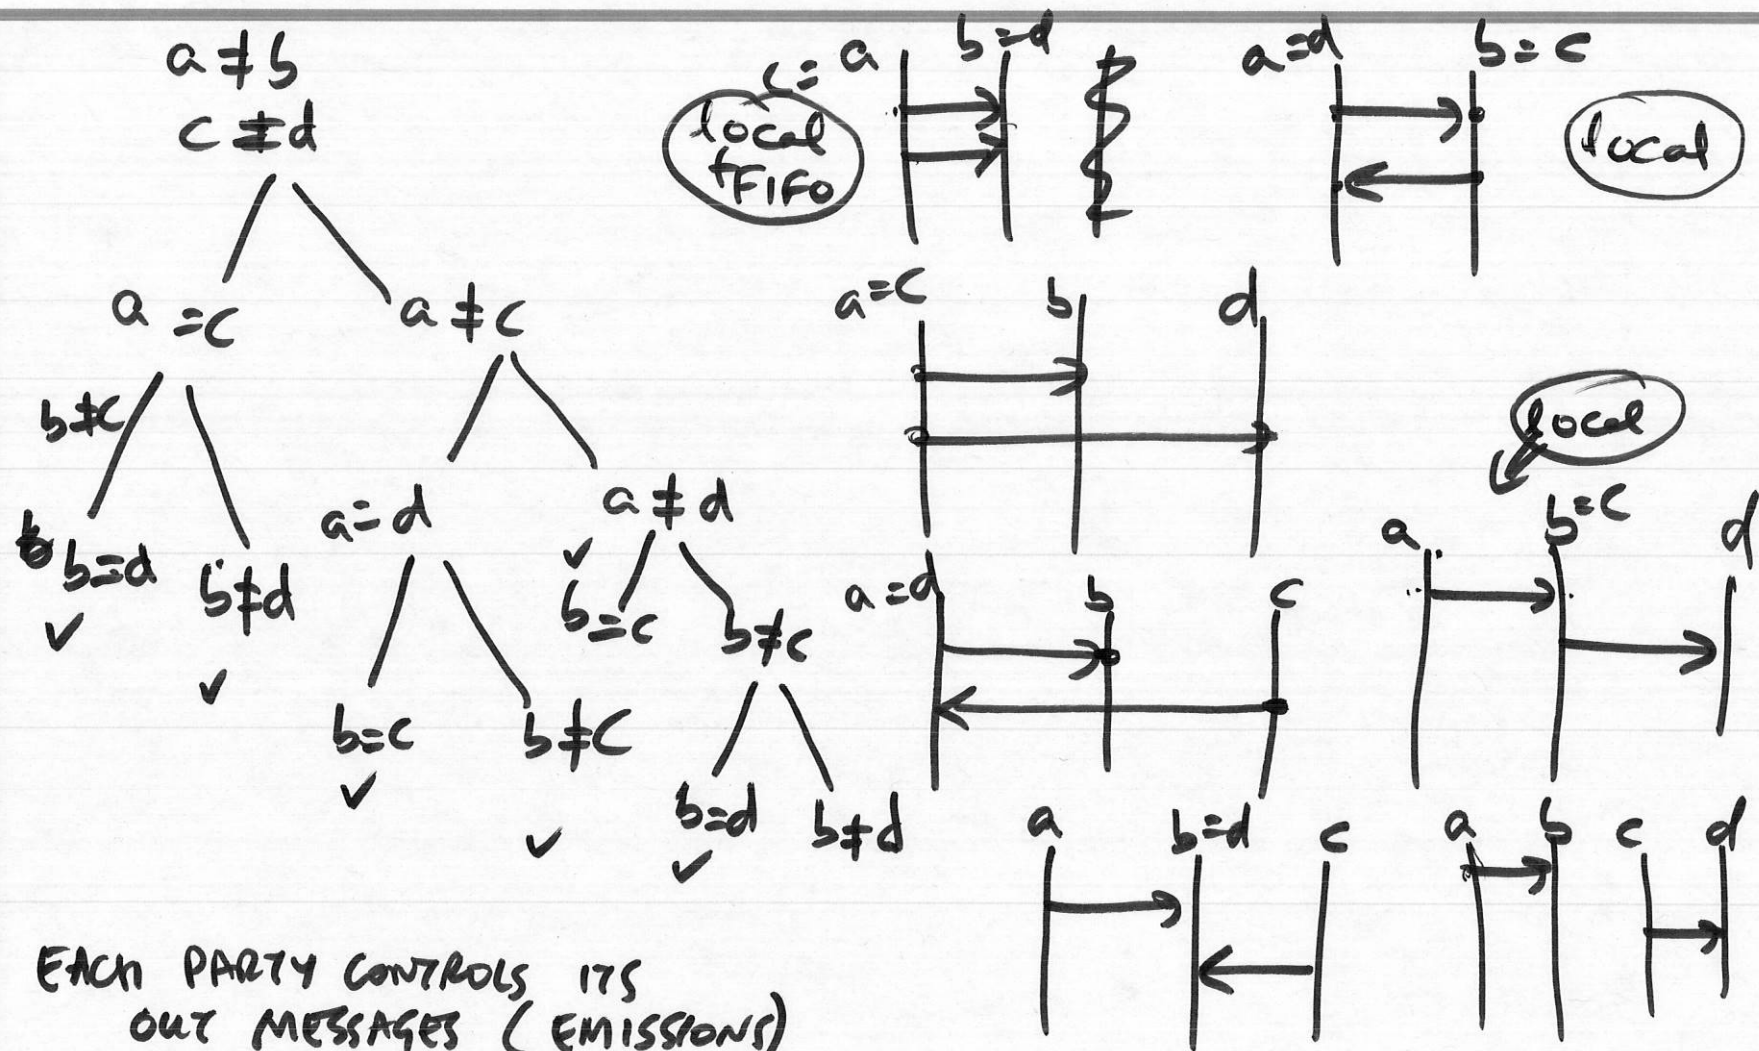 a ≠ b
c ≠ d
a = c
a ≠ c
b ≠ c
b = d
b ≠ d
a = d
a ≠ d
b = c
b ≠ c
b = c
b ≠ c
b = d
b ≠ d
EACH PARTY CONTROLS ITS
OUT MESSAGES (EMISSIONS)
c = a
b = d
local
+FIFO
a = d
b = c
local
a = c
b
d
local
a = d
b
c
a
b = c
d
a
b = d
c
a
b
c
d